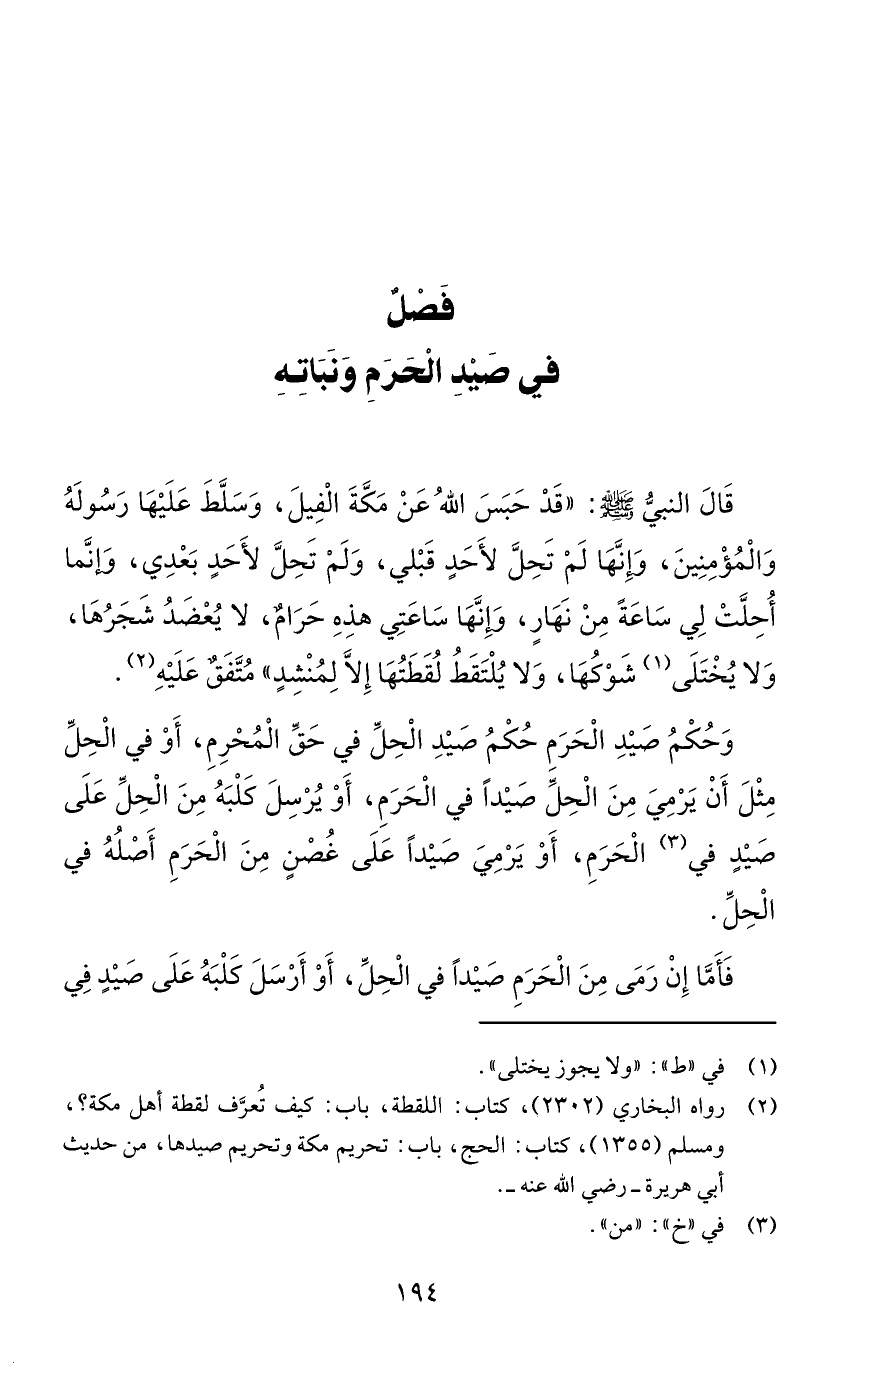 فَصْلٌ
في صَيْدِ الْحَرَمِ وَنَبَاتِهِ
قَالَ النبيُّ ﷺ: «قَدْ حَبَسَ اللهُ عَنْ مَكَّةَ الْفِيلَ، وَسَلَّطَ عَلَيْهَا رَسُولَهُ
وَالْمُؤْمِنِينَ، وَإِنَّهَا لَمْ تَحِلَّ لأَحَدٍ قَبْلي، وَلَمْ تَحِلَّ لأَحَدٍ بَعْدِي، وَإِنَّما
أُحِلَّتْ لِي سَاعَةً مِنْ نَهَارٍ، وَإِنَّهَا سَاعَتِي هذِهِ حَرَامٌ، لا يُعْضَدُ شَجَرُهَا،
وَلا يُخْتَلَى(١) شَوْكُهَا، وَلا يُلْتَقَطُ لُقَطَتُهَا إِلاَّ لِمُنْشِدٍ» مُتَّفَقٌ عَلَيْهِ(٢).
وَحُكْمُ صَيْدِ الْحَرَمِ حُكْمُ صَيْدِ الْحِلِّ في حَقِّ الْمُحْرِمِ، أَوْ في الْحِلِّ
مِثْلَ أَنْ يَرْمِيَ مِنَ الْحِلِّ صَيْداً في الْحَرَمِ، أَوْ يُرْسِلَ كَلْبَهُ مِنَ الْحِلِّ عَلَى
صَيْدٍ في(٣) الْحَرَمِ، أَوْ يَرْمِيَ صَيْداً عَلَى غُصْنٍ مِنَ الْحَرَمِ أَصْلُهُ في
الْحِلِّ.
فَأَمَّا إِنْ رَمَى مِنَ الْحَرَمِ صَيْداً في الْحِلِّ، أَوْ أَرْسَلَ كَلْبَهُ عَلَى صَيْدٍ فِي
(١) في «ط»: «ولا يجوز يختلى».
(٢) رواه البخاري (٢٣٠٢)، كتاب: اللقطة، باب: كيف تُعرَّف لقطة أهل مكة؟،
ومسلم (١٣٥٥)، كتاب: الحج، باب: تحريم مكة وتحريم صيدها، من حديث
أبي هريرة ـ رضي الله عنه ـ.
(٣) في «خ»: «من».
١٩٤